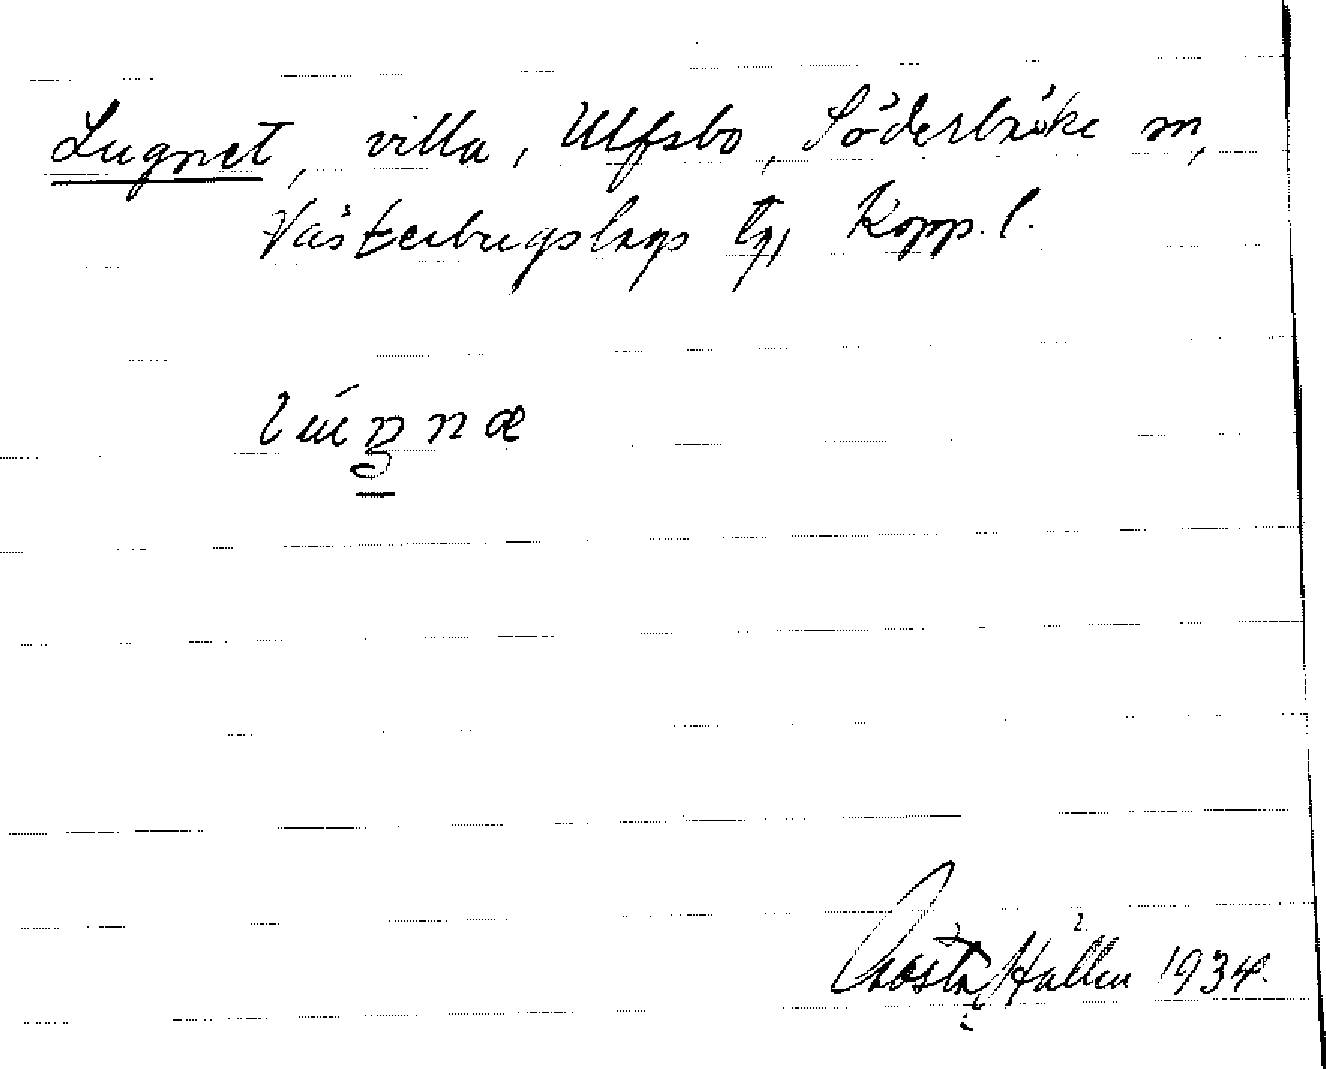 Lugnet, villa, Ulfsbo, Söderbärke sn,
Västerbergslags tg, Kopp. l.
Gösta Hállen 1934.